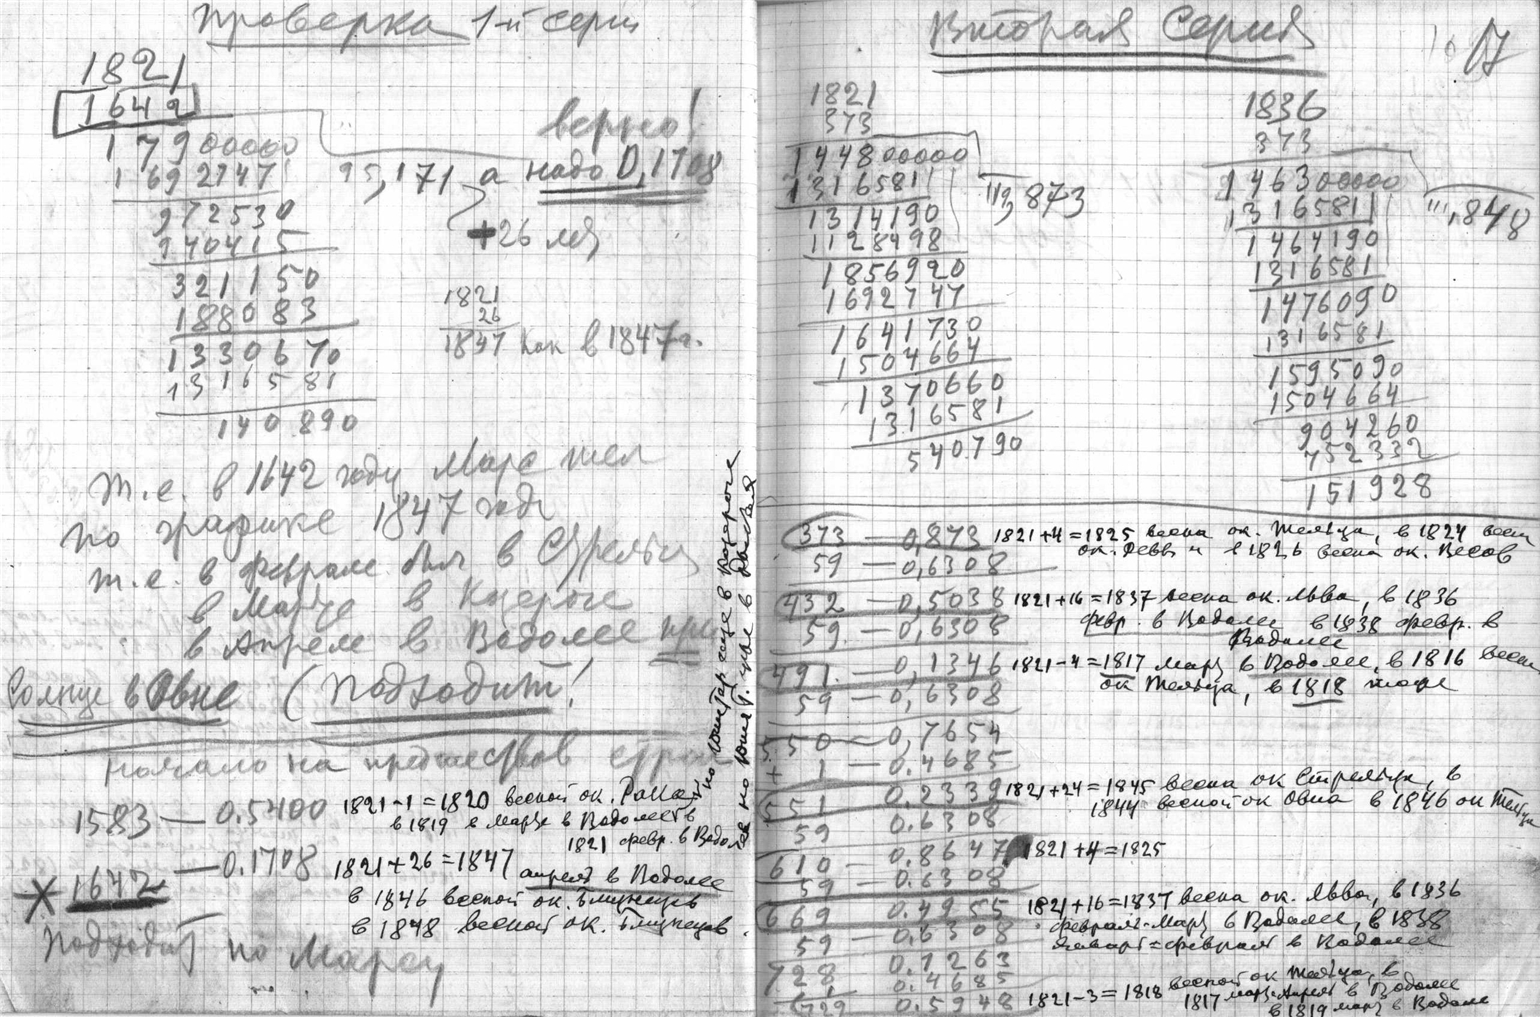 Проверка 1-й серии
1821
1642
17900000
1692747
972530
940415
321150
188083
1330670
1316581
140890
95,171 а надо 0,1708
верно!
+26 лет
1821
26
1847 как в 1847 г.
т.е. в 1642 году Марс шел
по графике 1847 года
т.е. в феврале был в Стрельце
в Марте в Козероге
в Апреле в Водолее при
Солнце в Овне (Подходит!
начало на предшествов стран
1583 — 0.5400 1821-1=1820 весной ок. Рака
в 1819 в Марте в Водолее в
1821 февр. в Водолее
1642 — 0.1708 1821+26=1847 апрель в Водолее
в 1846 весной ок. Близнецов
в 1848 весной ок. Близнецов.
Подходит по Марсу
но Юпитер еще в Козероге
Вторая Серия
17
1821
373
144800000
1316581
1314190
1128498
1856920
1692747
1641730
1504664
1370660
1316581
540790
113,873
1836
373
146300000
1316581
1464190
1316581
1476090
1316581
1595090
1504664
904260
752332
151928
111,848
373 — 0,873 1821+4=1825 весна ок. Тельца, в 1824 весн
ок. Девы и в 1826 весна ок. Весов
59 — 0,6308
432 — 0,5038 1821+16=1837 весна ок. Льва, в 1836
59 — 0,6308 февр. в Водолее в 1838 февр. в
Водолее
491 — 0,1346 1821-4=1817 Март в Водолее, в 1816 весн
59 — 0,6308 ок Тельца, в 1818 тоже
550 — 0,7654
+ 1 — 0.4685
551 0.2339 1821+24=1845 весна ок Стрельца, в
59 0.6308 1844 весной ок Овна в 1846 ок Тельца
610 — 0.8647 1821+4=1825
59 — 0.6308
669 0.4955 1821+16=1837 весна ок. Льва, в 1836
59 — 0.6308 февраль-Март в Водолее, в 1838
январь=февраль в Водолее
728 0.1263
1 0.4685
729 0.5948 1821-3=1818 весной ок Тельца, в
1817 март-Апрель в Водолее
в 1819 март в Водолее